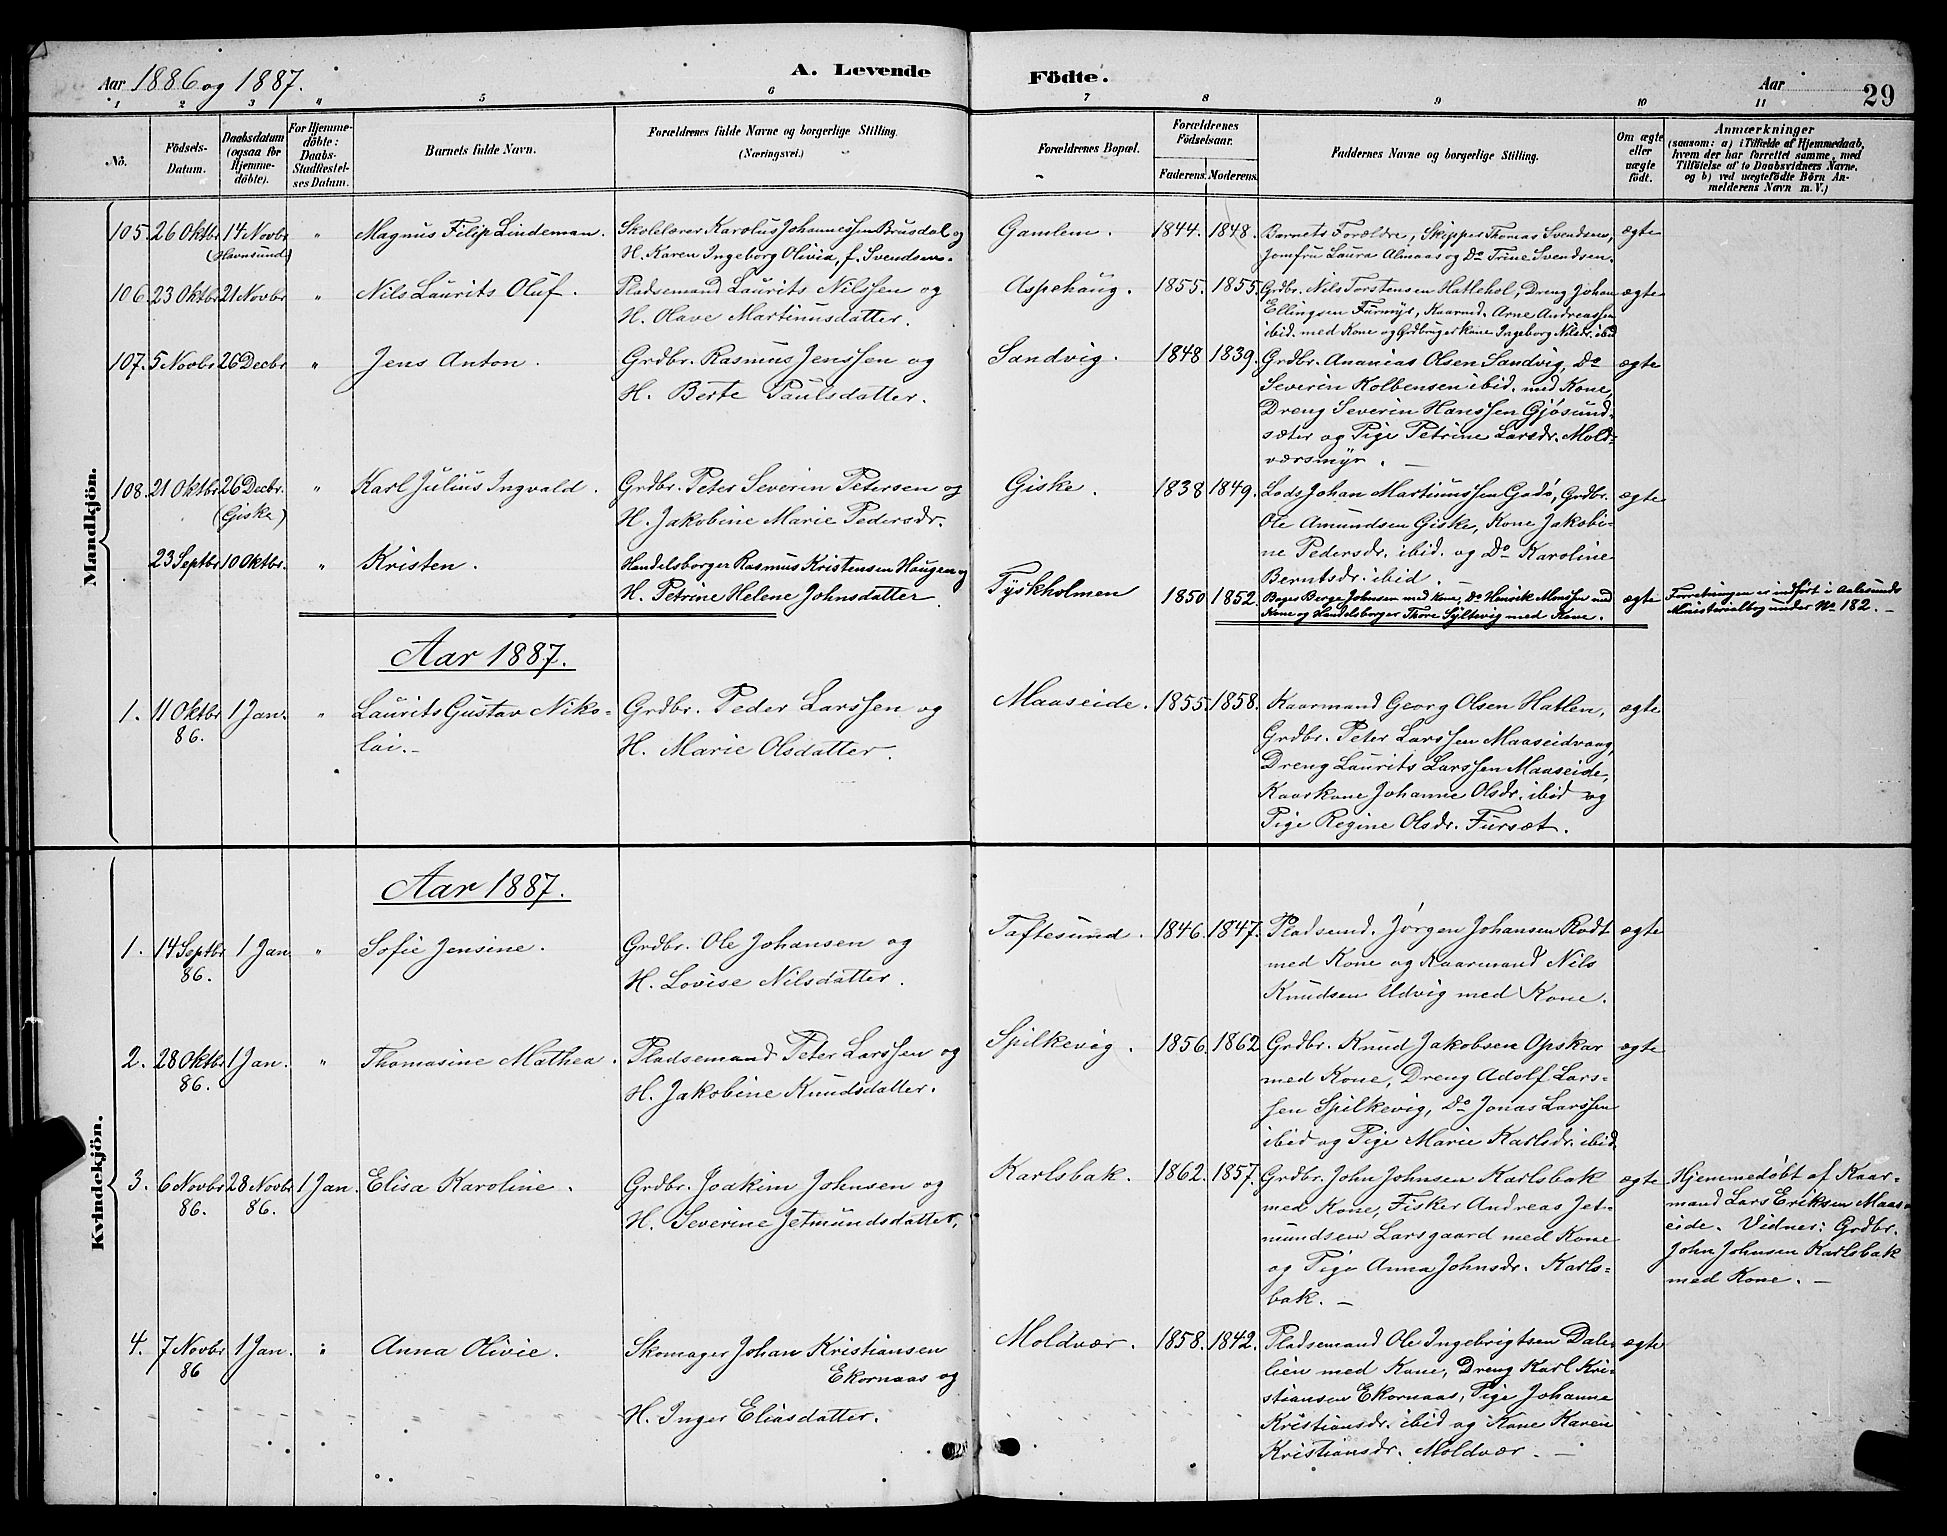 Aar 1886 og 1887.
A. Levende
Födte.
Aar
29
1 2 3 " 5 6 7 8 9 10 11
No.
Födsels-
Datum.
Daabsdatum
(ogsaa for
Hjemme-
döbte).
For Hjemme-
döbte:
Daabs-
Stadfæstel-
ses Datum.
Barnets fulde Navn.
Forældrenes fulde Navne og borgerlige Stilling.
(Næringsvei.)
Forældrenes Bopæl.
Forældrenes
Födselsaar.
Faderens. Moderens.
Faddernes Navne og borgerlige Stilling.
Om ægte
eller
uægte
födt.
Anmærkninger
(saasom: a) i Tilfælde af Hjemmedaab,
hvem der har forrettet samme, med
Tilföielse af to Daabsvidners Navne,
og b) ved uægtefödte Börn An-
melderens Navn m. V.)
Mandkjön.
105. 26 Oktbr 14 Novbr " Magnus Filip Lindeman. Skolelærer Karolus Johannessen Brusdal og Gamlem. 1844. 1848. Barnets Forældre, Skipper Thomas Svendsen, ægte
(Havnsund) H. Karen Ingeborg Olivia, f. Svendsen. Jomfru Laura Almaas og Do Trine Svendsen.
106. 23 Oktbr 21 Novbr " Nils Laurits Oluf. Pladsemand Laurits Nilssen og Aspehaug. 1855. 1855. Grdbr. Nils Torstensen Hatlehol, Dreng Johan ægte
H. Olave Martinusdatter. Ellingsen Furmyr, Kaarmd. Arne Andreassen
ibid. med Kone og Grdbrugerkone Ingeborg Nilsdr. ibid
107. 5 Novbr 26 Decbr " Jens Anton. Grdbr. Rasmus Jenssen og Sandvig. 1848 1839. Grdbr. Ananias Olsen Sandvig, Do ægte
H. Berte Paulsdatter. Severin Kolbensen ibid. med Kone,
Dreng Severin Hanssen Gjøsund-
sæter og Pige Petrine Larsdr. Mold-
værsmyr.
108. 21 Oktbr 26 Decbr. " Karl Julius Ingvald. Grdbr. Peter Severin Petersen og Giske. 1838 1849. Lods Johan Martinussen Godø, Grdbr. ægte
(Giske) H. Jakobine Marie Pedersdr. Ole Amundsen Giske, Kone Jakobi-
ne Pedersdr. ibid. og Do Karoline
Berntsdr. ibid.
23 Septbr 10 Oktbr. " Kristen. Handelsborger Rasmus Kristensen Haugen og Tyskholmen 1850 1852. Bager Berge Johnsen med Kone, Do Henrik Monssen med ægte Forretningen er indført i Aalesunds
H. Petrine Helene Johnsdatter. Kone og Handelsborger Thore Syltevig med Kone. Ministerialbog under No 182. –
Aar 1887.
1. 11 Oktbr 1 Jan. " Laurits Gustav Niko- Grdbr. Peder Larssen og Maaseide. 1855. 1858. Kaarmand Georg Olsen Hatlen, ægte
86. lai. – H. Marie Olsdatter. Grdbr. Peter Larssen Maaseidvaag,
Dreng Laurits Larssen Maaseide,
Kaarkone Johanne Olsdr. ibid og
Pige Regine Olsdr. Fursæt.
Kvindekjön.
Aar 1887.
1. 14 Septbr 1 Jan " Sofie Jensine. Grdbr. Ole Johansen og Taftesund. 1846. 1847. Pladsemd. Jørgen Johansen Rødt ægte
86. H. Lovise Nilsdatter. med Kone og Kaarmand Nils
Knudsen Udvig med Kone.
2. 28 Oktbr 1 Jan. " Thomasine Mathea. Pladsemand Peter Larssen og Spilkevig. 1856. 1862 Grdbr. Knud Jakobsen Opskar ægte
86. H. Jakobine Knudsdatter. med Kone, Dreng Adolf Lars-
sen Spilkevig, Do Jonas Larssen
ibid og Pige Marie Karlsdr. ibid.
3. 6 Novbr 28 Novbr 1 Jan. Elisa Karoline. Grdbr. Joakim Johnsen og Karlsbak. 1862. 1857. Grdbr. John Johnsen Karlsbak ægte Hjemmedøbt af Kaar-
86. 86. H. Severine Jetmundsdatter. med Kone, Fisker Andreas Jet- mand Lars Eriksen Maas-
mundsen Larsgaard med Kone eide. Vidner: Grdbr.
og Pige Anna Johnsdr. Karls- John Johnsen Karlsbak
bak. – med Kone. –
4. 7 Novbr 1 Jan. " Anna Olivie. Skomager Johan Kristiansen Moldvær. 1858. 1842. Pladsemand Ole Ingebrigtsen Dale- ægte
86 Ekornaas og lien med Kone, Dreng Karl Kri-
H. Inger Eliasdatter. stiansen Ekornaas, Pige Johanne
Kristiansdr. ibid og Kone Karen
Kristiansdr. Moldvær. –